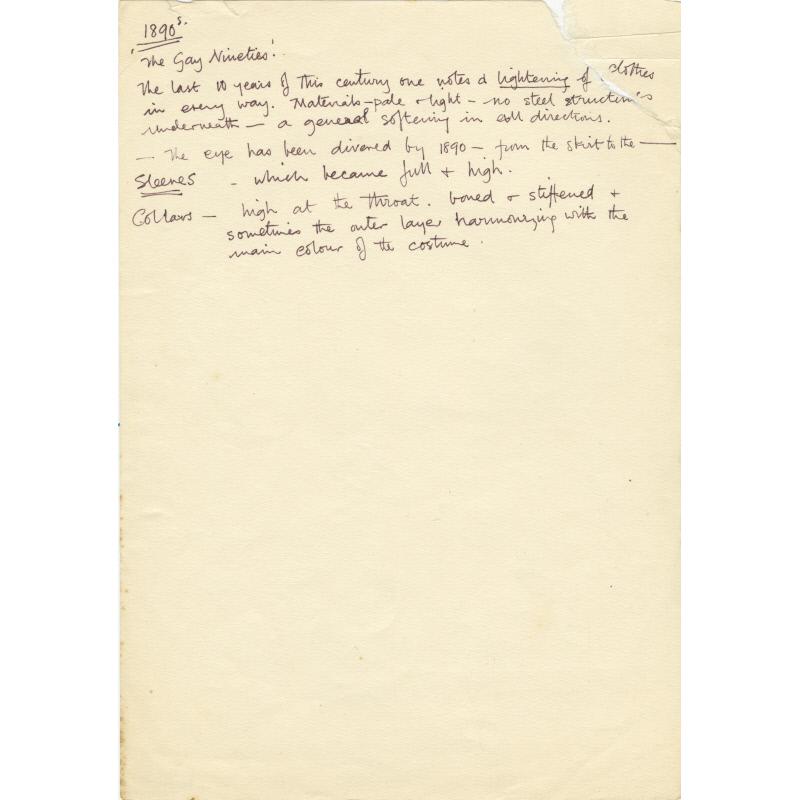 1890s.
'The Gay Nineties'.
The last 10 years of this century one notes a lightening of clothes
in every way. Materials - pale & light - no steel structures
underneath - a general softening in all directions.
- The eye has been divered by 1890 - from the skirt to the -
Sleeves - which became full & high.
Collars - high at the throat. boned & stiffened &
sometimes the outer layer harmonizing with the
main colour of the costume.